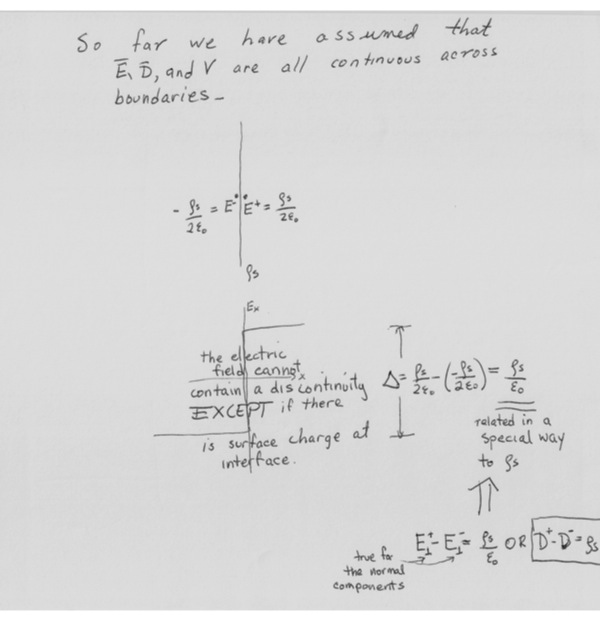 So far we have assumed that
Ē, D̄, and V are all continuous across
boundaries -
- ρs/2ε₀ = E⁻ E⁺ = ρs/2ε₀
ρs
Ex
the electric
field cannot
x
contain a discontinuity
EXCEPT if there
is surface charge at
interface.
Δ = ρs/2ε₀ - (-ρs/2ε₀) = ρs/ε₀
related in a
special way
to ρs
E⊥⁺ - E⊥⁻ = ρs/ε₀ OR D⁺ - D⁻ = ρs
true for
the normal
components